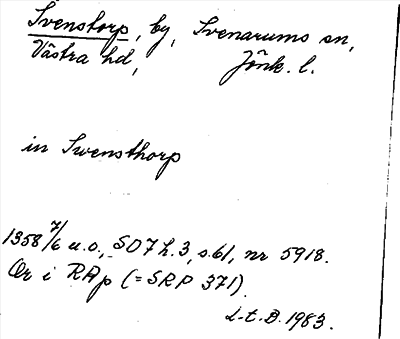 Svenstorp, by, Svenarums sn,
Västra hd, Jönk. l.
in Swensthorp
1358 7/6 u.o., SD 7 h.3, s.61, nr 5918.
Or i RAp (= SRP 371).
L.t.D. 1983.